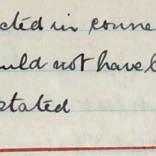 cted in conne
ould not have b
stated